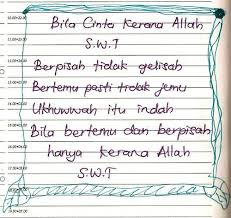 Bila Cinta Kerana Allah
S.W.T
Berpisah tidak gelisah
Bertemu pasti tidak jemu
Ukhuwwah itu indah
Bila bertemu dan berpisah
hanya kerana Allah
S.W.T